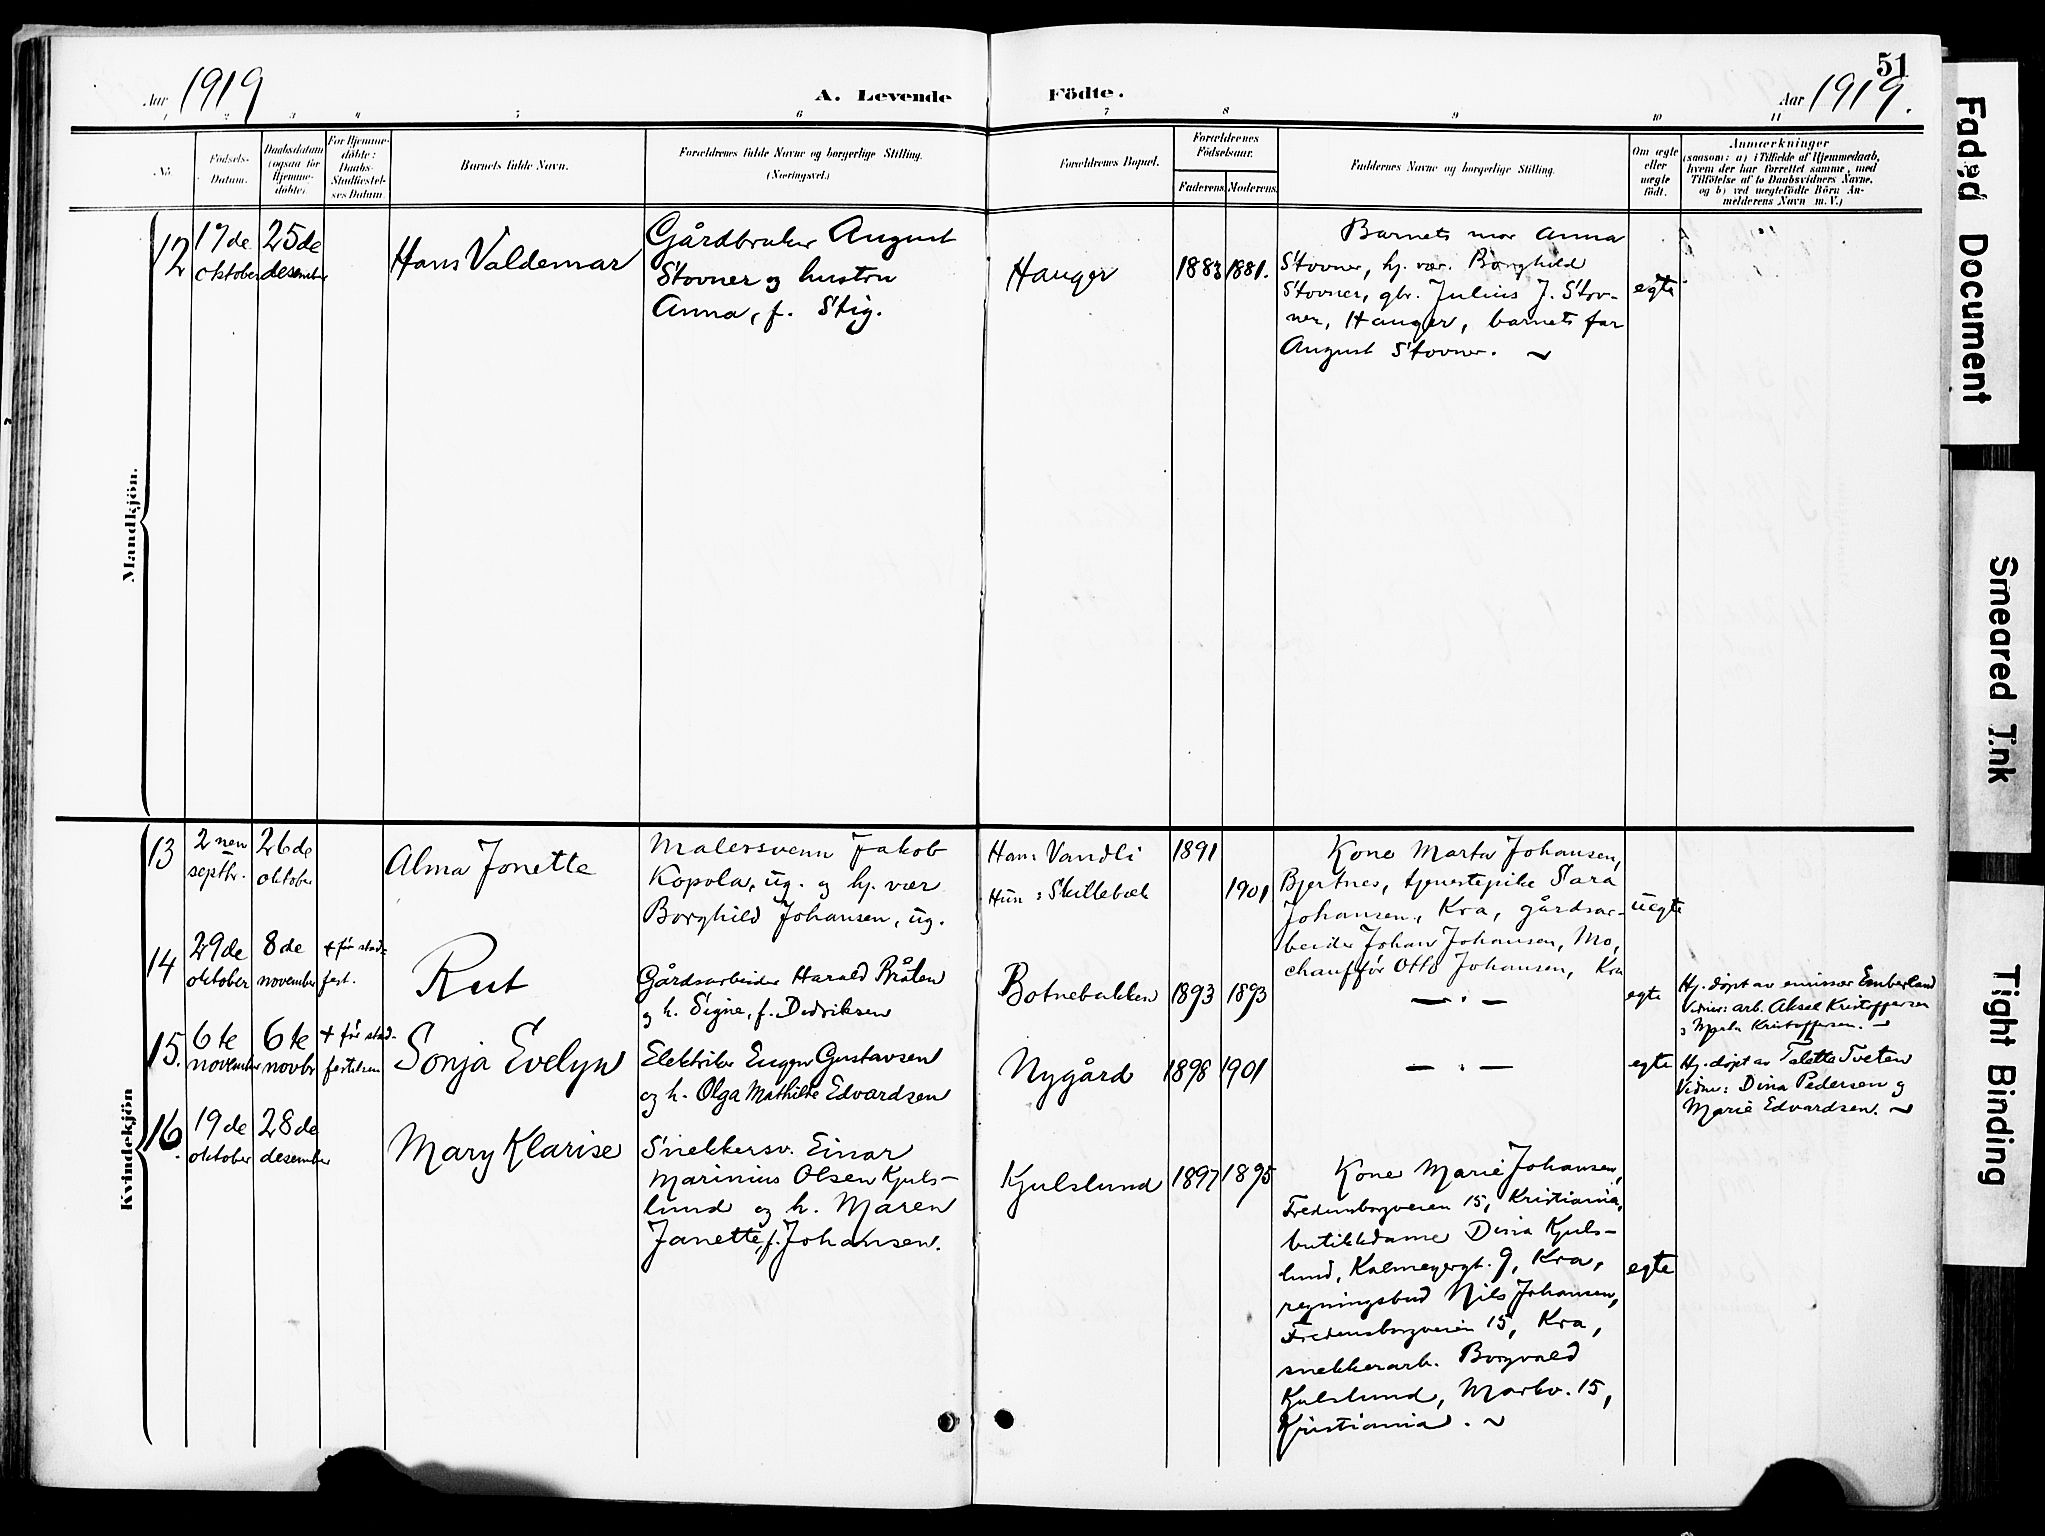 51
Aar 1919
A. Levende
Födte.
Aar 1919.
1 2 3 4 5 6 7 8 9 10 11
No
Födsels-
Datum.
Daabsdatum
(ogsaa for
Hjemme-
döbte).
For Hjemme-
döbte:
Daabs-
Stadfæstel-
ses Datum
Barnets fulde Navn.
Forældrenes fulde Navne og borgerlige Stilling.
(Næringsvei.)
Forældrenes Bopæl.
Forældrenes
Födselsaar.
Faderens. Moderens.
Faddernes Navne og borgerlige Stilling.
Om ægte
eller
uægte
födt.
Anmærkninger
(saasom: a) i Tilfælde af Hjemmedaab,
hvem der har forrettet samme, med
Tilföielse af to Daabsvidners Navne,
og b) ved uægtefödte Börn An-
melderens Navn m. V.)
Mandkjön.
12
17de
oktober
25de
desember
Hans Valdemar
Gårdbruker August
Stovner og hustru
Anna, f. Stig.
Hauger
1883
1881.
Barnets mor Anna
Stovner, hj. vær. Borghild
Stovner, gbr. Julius J. Stov-
ner, Hauger, barnets far
August Stovner. ~
egte
Kvindekjön
13
2nen
septbr.
26de
oktober
Alma Jonette
Malersvenn Jakob
Kopola, ug. og hj. vær
Borghild Johansen, ug.
Han: Vandli
Hun: Skillebæk
1891
1901
Kone Marta Johansen,
Bjertnes, tjenestepike Sara
Johansen, Kra, gårdsar-
beider Johan Johansen, Mo,
chauffør Otto Johansen, Kra
uegte
14
29de
oktober
8de
november
+ før stad-
fest.
Rut
Gårdsarbeider Harald Bråten
og h. Signe, f. Dedriksen
Botnebakken
1893
1893
— " —
egte
Hj. døpt av emissær Emberland
Vidner: arb. Aksel Kristoffersen
Kristoffersen. ~
15.
6te
november
6te
novbr
+ før stad-
festelsen
Sonja Evelyn
Elektriker Eugen Gustavsen
og h. Olga Mathilde Edvardsen
Nygård
1898
1901
— " —
egte
Hj. døpt av Talette Tveten
Vidner: Dina Pedersen og
Marie Edvardsen. ~
16.
19de
oktober
28de
desember
Mary Klarise
Snekkersv. Einar
Marinius Olsen Kjuls-
lund og h. Maren
Janette, f. Johansen.
Kjulslund
1897
1895
Kone Marie Johansen,
Fredensborgveien 15, Kristiania,
butikkdame Dina Kjuls-
lund, Kalmeyergt. 9, Kra,
regningsbud Nils Johansen,
Fredensborgveien 15, Kra,
snekkerarb. Borgvald
Kjulslund, Markv. 15,
Kristiania. ~
egte
Faded Document
Smeared Ink
Tight Binding